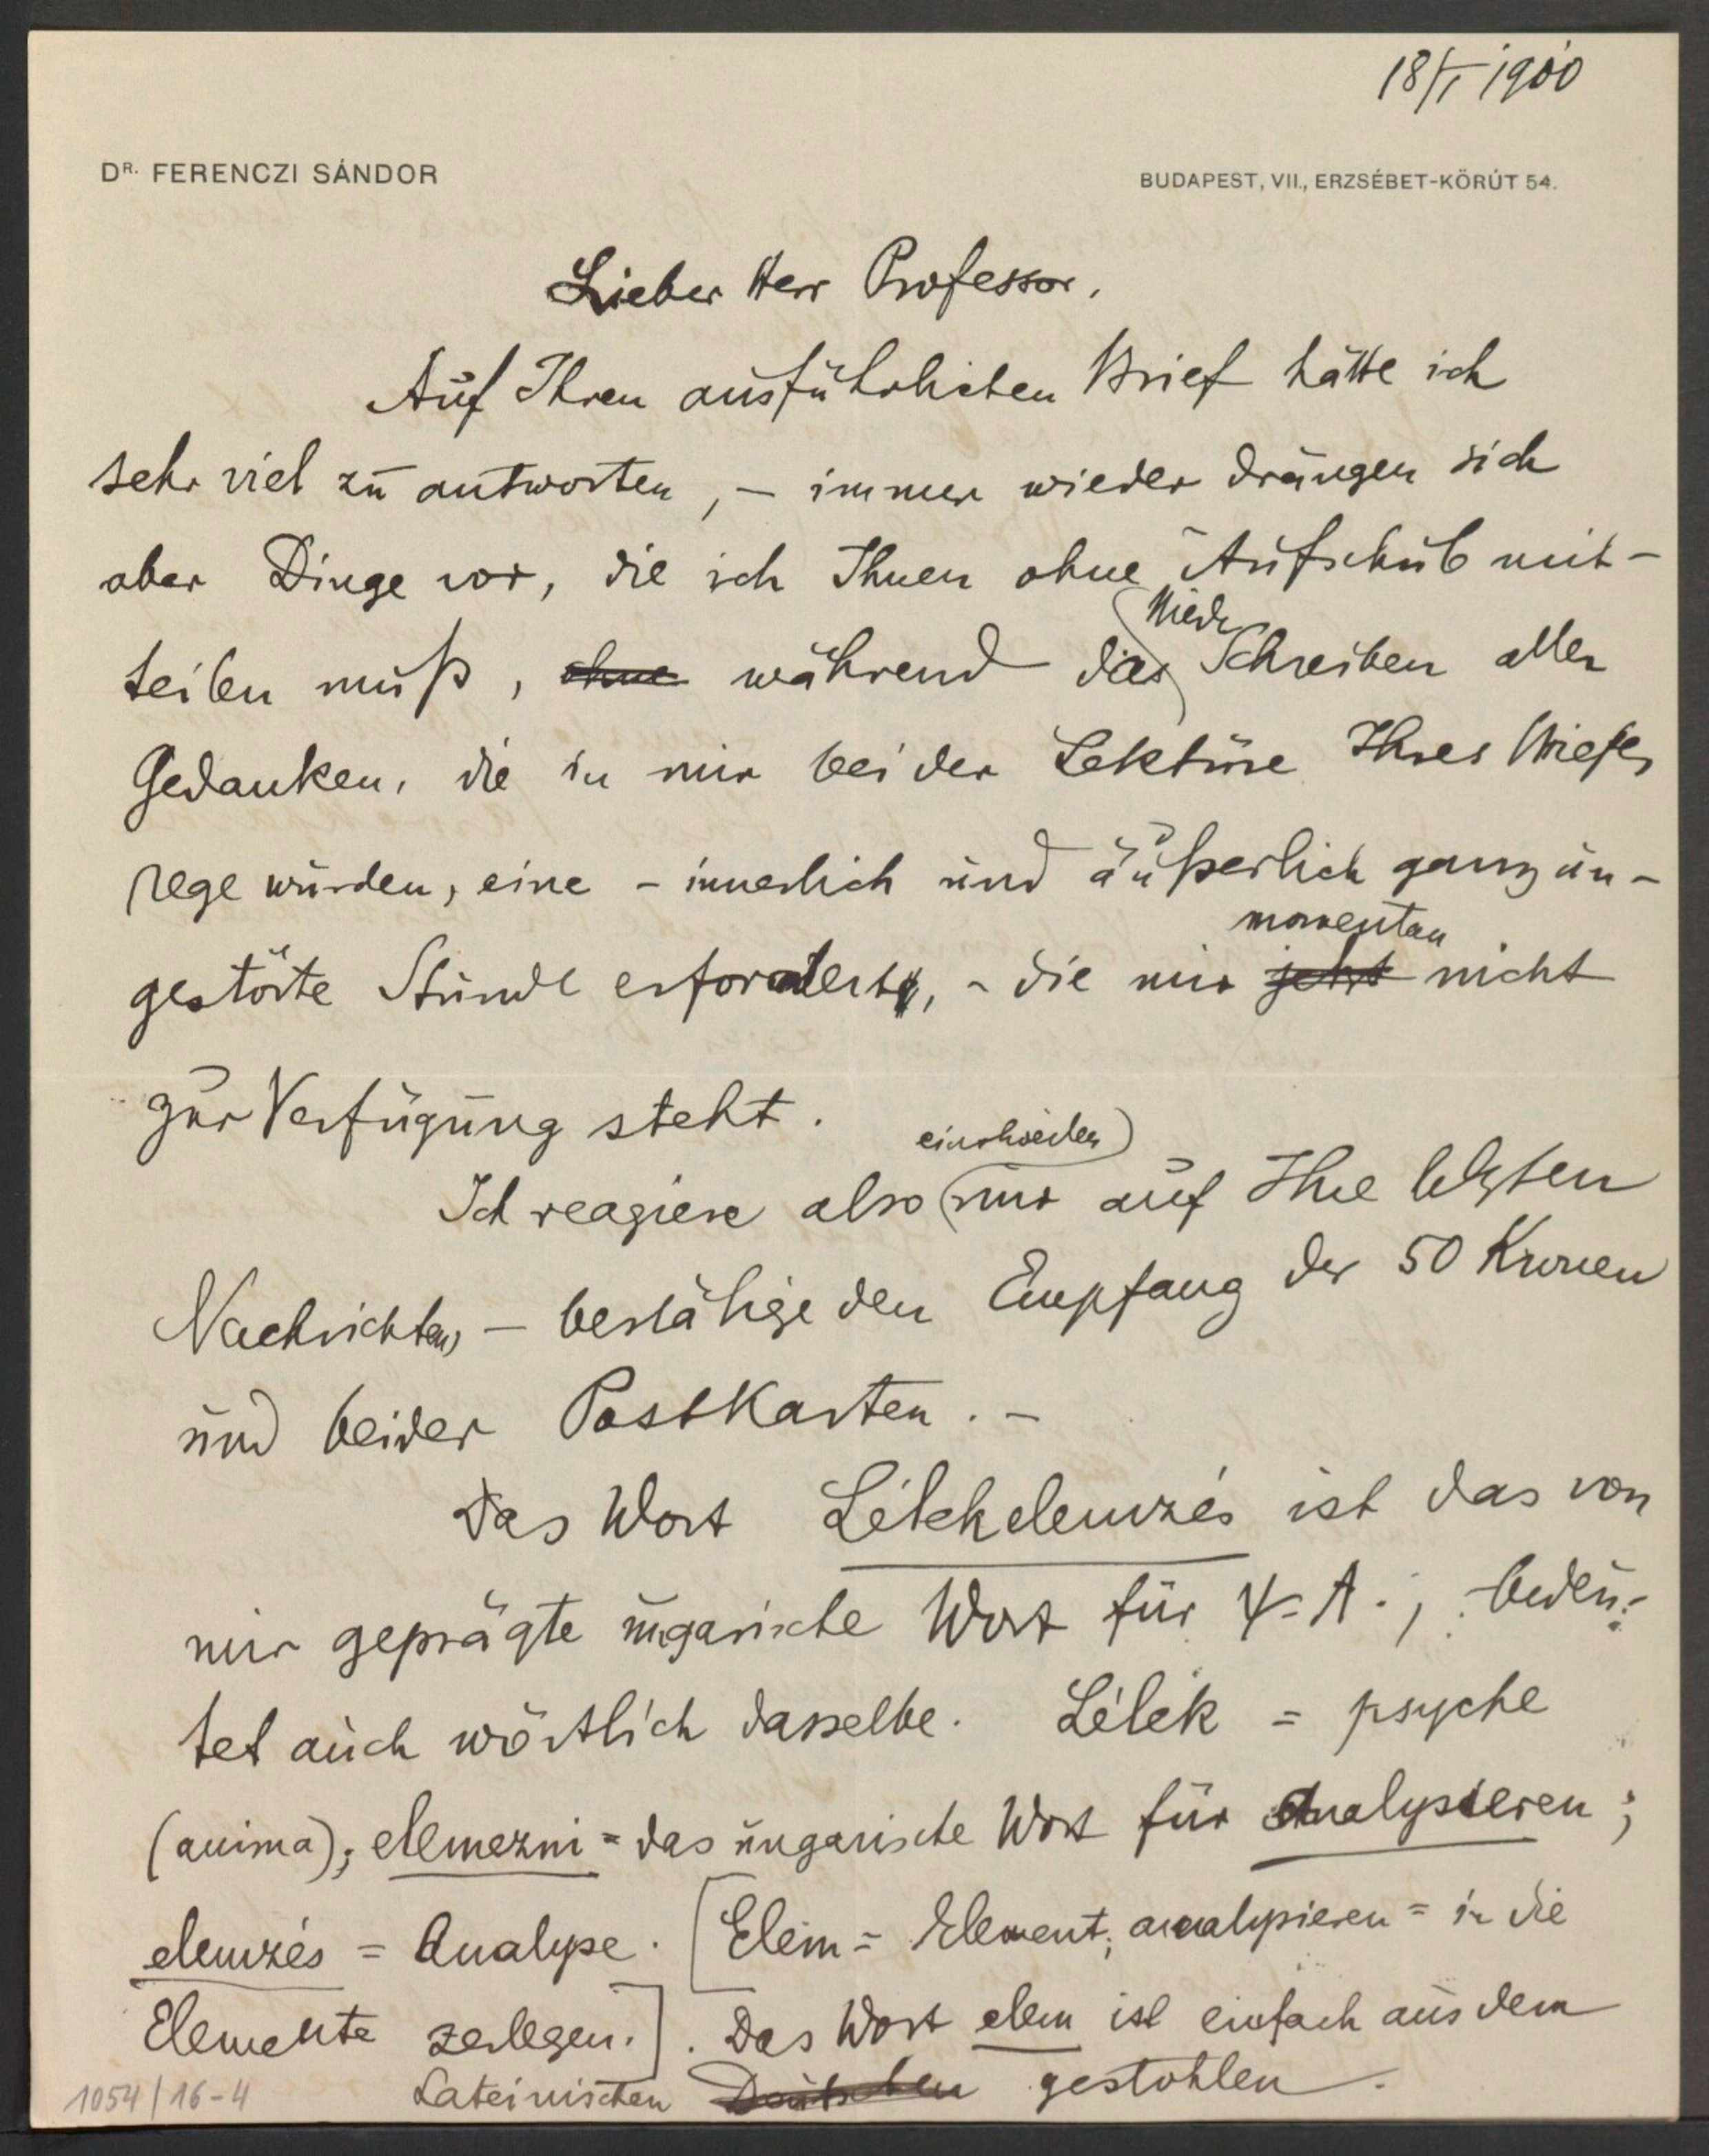 18/I 1900
DR. FERENCZI SÁNDOR
BUDAPEST, VII., ERZSÉBET-KÖRÚT 54.
Lieber Herr Professor,
Auf Ihren ausführlichen Brief hätte ich
sehr viel zu antworten, – immer wieder drängen sich
aber Dinge vor, die ich Ihnen ohne Aufschub mit-
teilen muß, ohne während das Nieder Schreiben aller
Gedanken, die in mir bei der Lektüre Ihres Briefes
rege wurden, eine – innerlich und äußerlich ganz un-
momentan
gestörte Stunde erfordert, – die mir jetzt nicht
zur Verfügung steht.
einstweilen
Ich reagiere also nur auf Ihre letzten
Nachrichten, – bestätige den Empfang der 50 Kronen
und beider Postkarten. –
Das Wort Lélekelemzés ist das von
mir geprägte ungarische Wort für Ψ-A.; bedeu-
tet auch wörtlich dasselbe. Lélek = psyche
(anima); elemezni = das ungarische Wort für Analysieren;
elemzés = Analyse. [Elem = Element; analysieren = in die
Elemente zerlegen.]. Das Wort elem ist einfach aus dem
Lateinischen Deutschen gestohlen.
1054/16-4